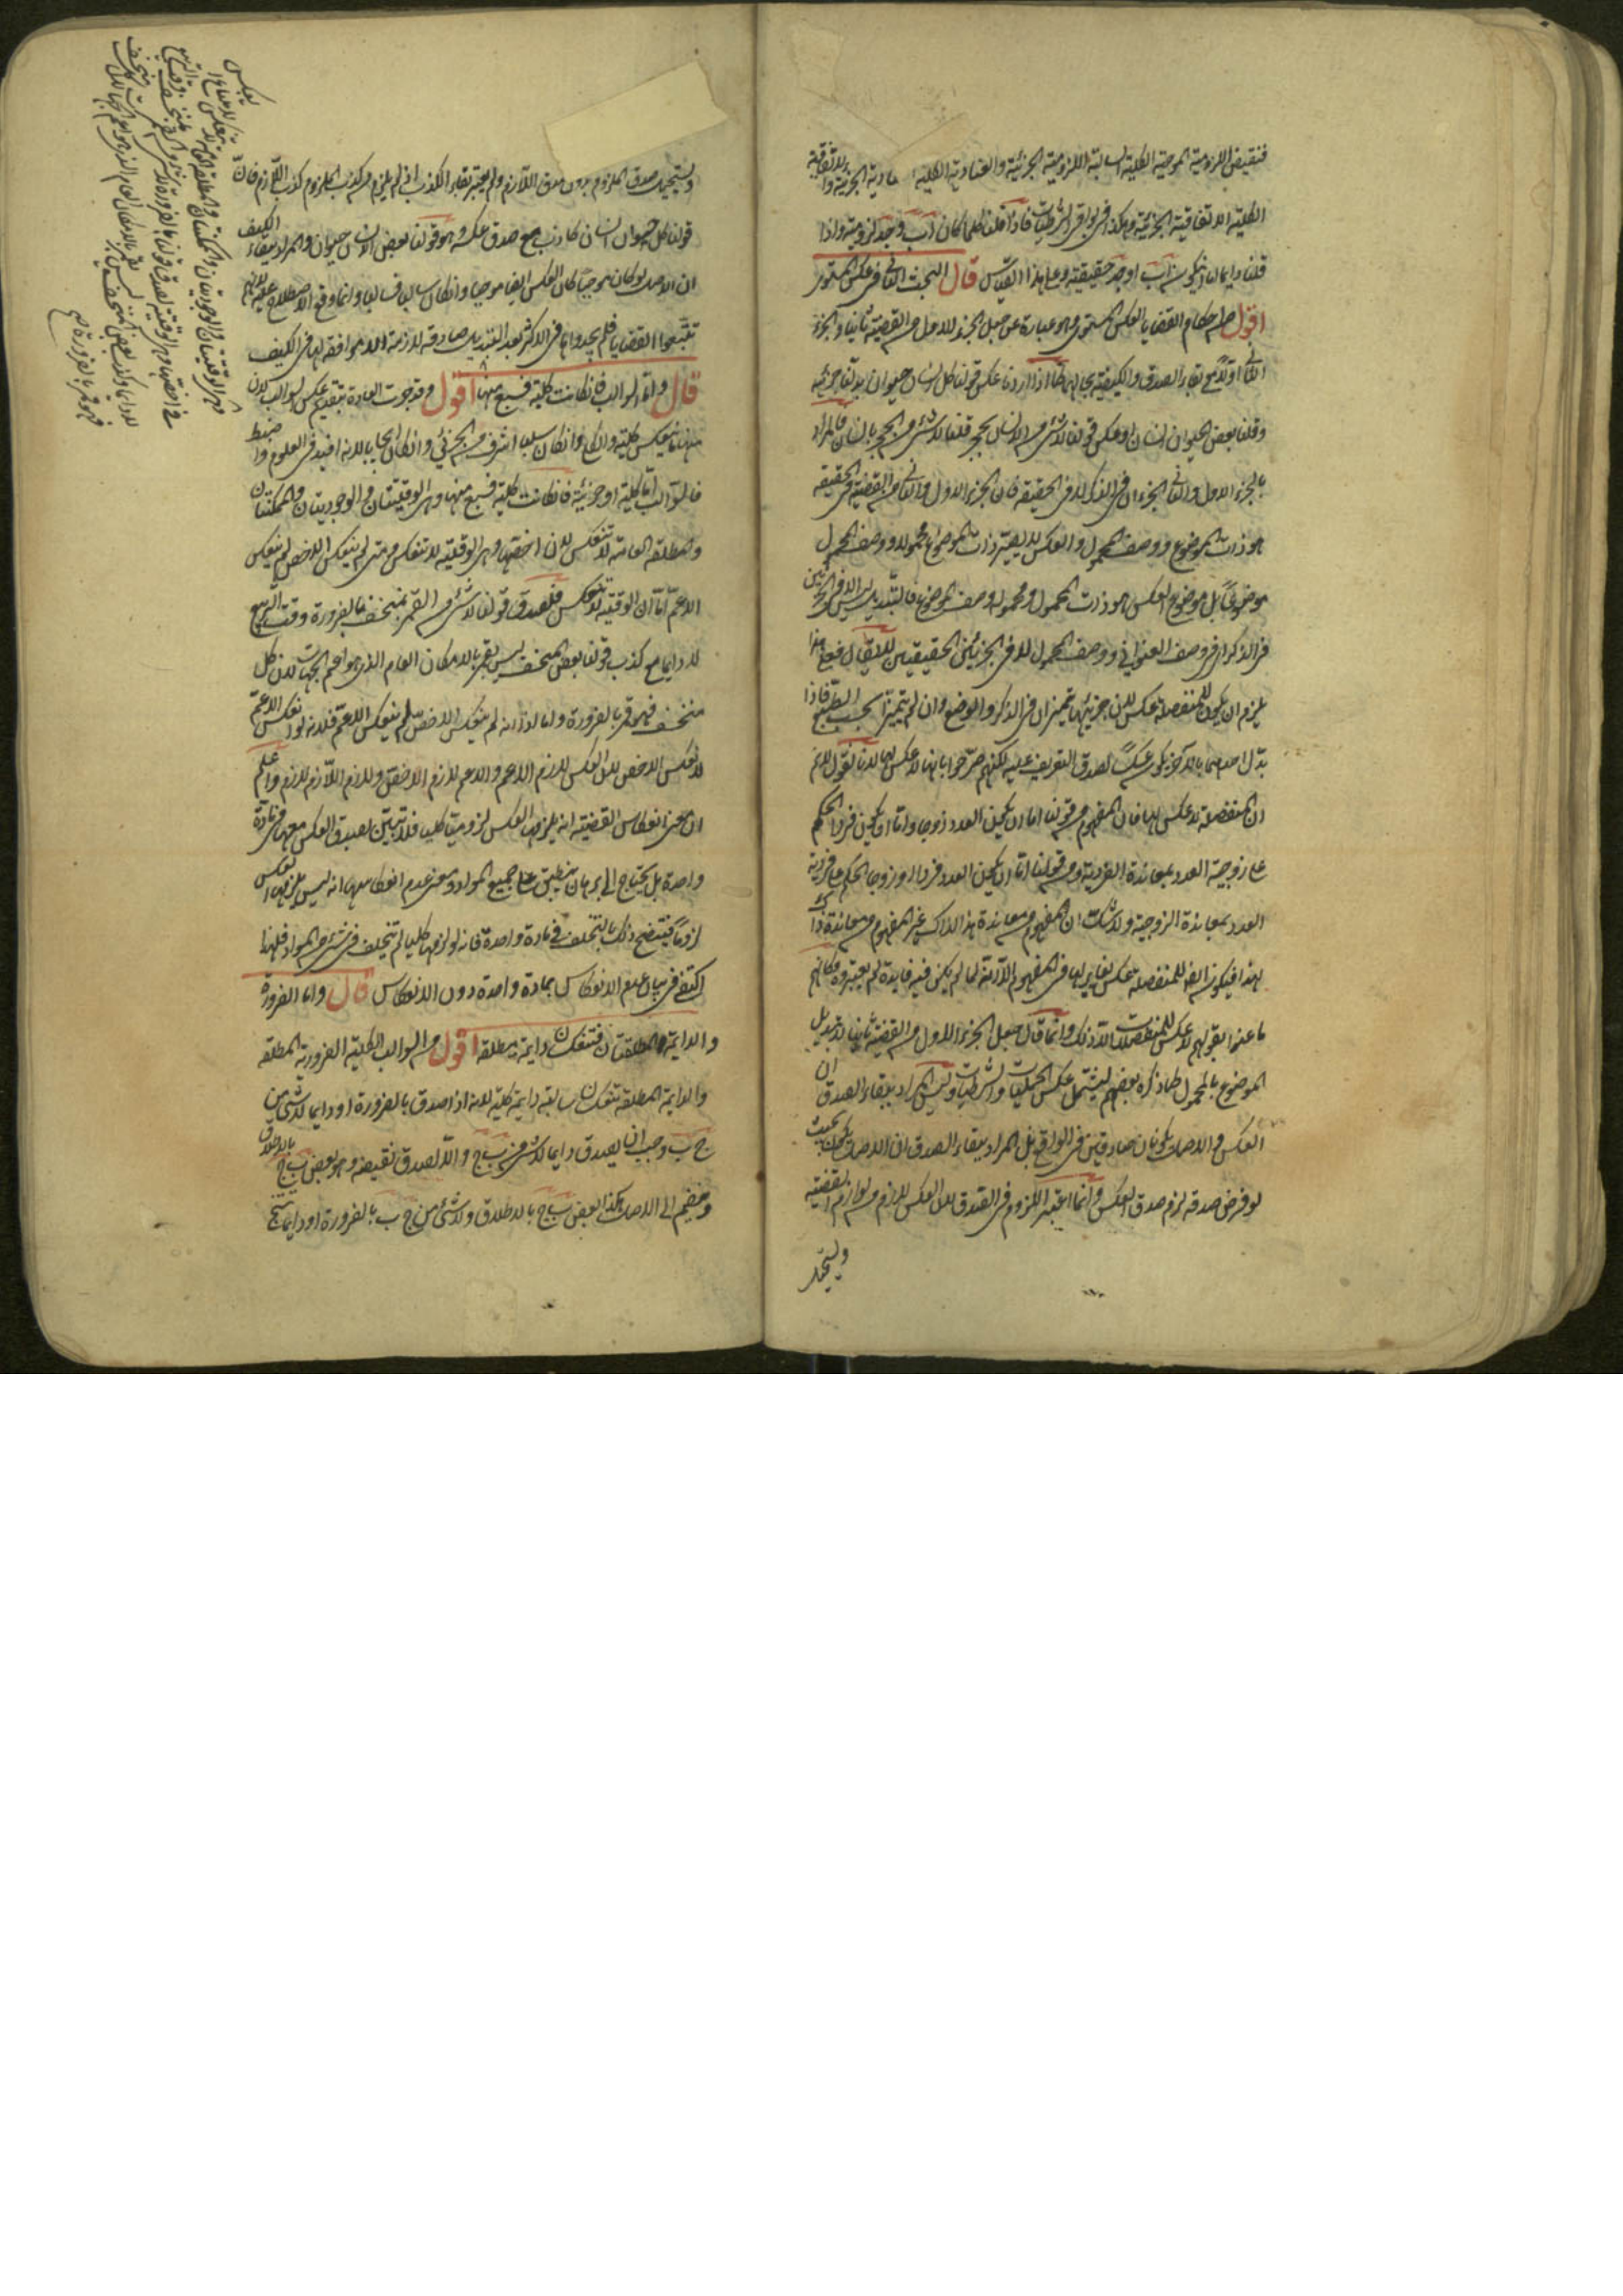 فنقيض اللزومية الموجبة الكلية السالبة اللزومية الجزئية والعنادية الكلية العنادية الجزئية والاتفاقية
الكلية الاتفاقية الجزئية وهكذا في بواقي الشرطيات فاذا قلنا كلما كان اب فج د لزومية واذا
قلنا دايما اما ان يكون اب او ج د حقيقية وعلى هذا القياس قال البحث الثاني في عكس المستوى
اقول من احكام القضايا العكس المستوى وهو عبارة عن جعل الجزء الاول من القضية ثانيا والجزء
الثاني اولا مع بقاء الصدق والكيفية بحالهما كما اذا اردنا عكس قولنا كل انسان حيوان بدلنا جزئيه
وقلنا بعض الحيوان انسان او عكس قولنا لا شيء من الانسان بحجر قلنا لا شيء من الحجر بانسان فالمراد
بالجزء الاول والثاني الجزءان في الذكر لا في الحقيقة فان الجزء الاول والثاني من القضية في الحقيقة
هو ذات الموضوع ووصف المحمول والعكس لا يصير ذات الموضوع محمولا ووصف المحمول
موضوعا بل موضوع العكس هو ذات المحمول ومحموله وصف الموضوع فالتبديل ليس الا في الجزئين
في الذكر اي في وصف العنواني ووصف المحمول لا في الجزئين الحقيقيين لا يقال فعلى هذا
يلزم ان يكون للمنفصلة عكس لان جزئيها متميزان في الذكر والوضع وان لم يتميزا بحسب الطبع فاذا
بدل احدهما بالآخر يكون عكسا لصدق التعريف عليه لكنهم صرحوا بانها لا عكس لها لانا نقول لا نم
ان المنفصلة لا عكس لها فان المفهوم من قولنا اما ان يكون العدد زوجا واما ان يكون فردا الحكم
على زوجية العدد بمعاندة الفردية ومن قولنا اما ان يكون العدد فردا او زوجا الحكم على فردية
العدد بمعاندة الزوجية ولا شك ان المفهوم من معاندة هذا لذاك غير المفهوم من معاندة ذاك
لهذا فيكون ايضا للمنفصلة عكس يغاير لها في المفهوم الا انه لما لم يكن فيه فايدة لم يعتبروه فكانهم
ما عنوا بقولهم لا عكس للمنفصلات الا ذلك وانما قال جعل الجزء الاول من القضية ثانيا لا تبديل
الموضوع بالمحمول كما ذكره بعضهم ليشتمل عكس الحمليات والشرطيات وليس المراد ببقاء الصدق ان
العكس والاصل يكونان صادقين في الواقع بل المراد ببقاء الصدق ان الاصل يكون بحيث
لو فرض صدقه لزم صدق العكس وانما اعتبر اللزوم في الصدق لان العكس لازم من لوازم القضية
ويستحيل
ويستحيل صدق الملزوم بدون صدق اللازم ولم يعتبر بقاء الكذب اذ لم يلزم من كذب الملزوم كذب اللازم فان
قولنا كل حيوان انسان كاذب مع صدق عكسه وهو قولنا بعض الانسان حيوان والمراد ببقاء الكيف
ان الاصل لو كان موجبا كان العكس ايضا موجبا وان كان سالبا فسالبا وانما وقع الاصطلاح عليه لانهم
تتبعوا القضايا فلم يجدوها في الاكثر بعد التبديل صادقة لازمة الا موافقة لها في الكيف
قال واما السوالب فان كانت كلية فسبع منها اقول قد جرت العادة بتقديم عكس السوالب لان
منها ما ينعكس كلية والكلي وان كان سلبا اشرف من الجزئي وان كان ايجابا لانه افيد في العلوم واضبط
فالسوالب اما كلية او جزئية فان كانت كلية فسبع منها وهي الوقتيتان والوجوديتان والممكنتان
والمطلقة العامة لا تنعكس لان اخصها وهي الوقتية لا تنعكس ومتى لم ينعكس الاخص لم ينعكس
الاعم اما ان الوقتية لا تنعكس فلصدق قولنا لا شيء من القمر بمنخسف بالضرورة وقت التربيع
لا دايما مع كذب قولنا بعض المنخسف ليس بقمر بالامكان العام الذي هو اعم الجهات لان كل
منخسف فهو قمر بالضرورة واما انه اذا لم ينعكس الاخص لم ينعكس الاعم فلانه لو انعكس الاعم
لانعكس الاخص لان العكس لازم الاعم والاعم لازم الاخص ولازم اللازم لازم واعلم
ان معنى انعكاس القضية انه يلزمها العكس لزوما كليا فلا تبين بصدق العكس معها في مادة
واحدة بل يحتاج الى برهان منطبق على جميع المواد ومعنى عدم انعكاسها انه ليس يلزمها العكس
لزوما كليا فيتضح ذلك بالتخلف في مادة واحدة فانه لو لزمها كليا لم يتخلف في شيء من المواد فلهذا
اكتفى في بيان عدم الانعكاس بمادة واحدة دون الانعكاس قال واما الضرورية
والدايمة المطلقتان فتنعكسان دايمة مطلقة اقول من السوالب الكلية الضرورية المطلقة
والدايمة المطلقة تنعكسان سالبة دايمة كلية لانه اذا صدق بالضرورة او دايما لا شيء من
ج ب وجب ان يصدق دايما لا شيء من ب ج والا لصدق نقيضه وهو بعض ب ج بالاطلاق
وينضم الى الاصل هكذا بعض ب ج بالاطلاق ولا شيء من ج ب بالضرورة او دايما ينتج